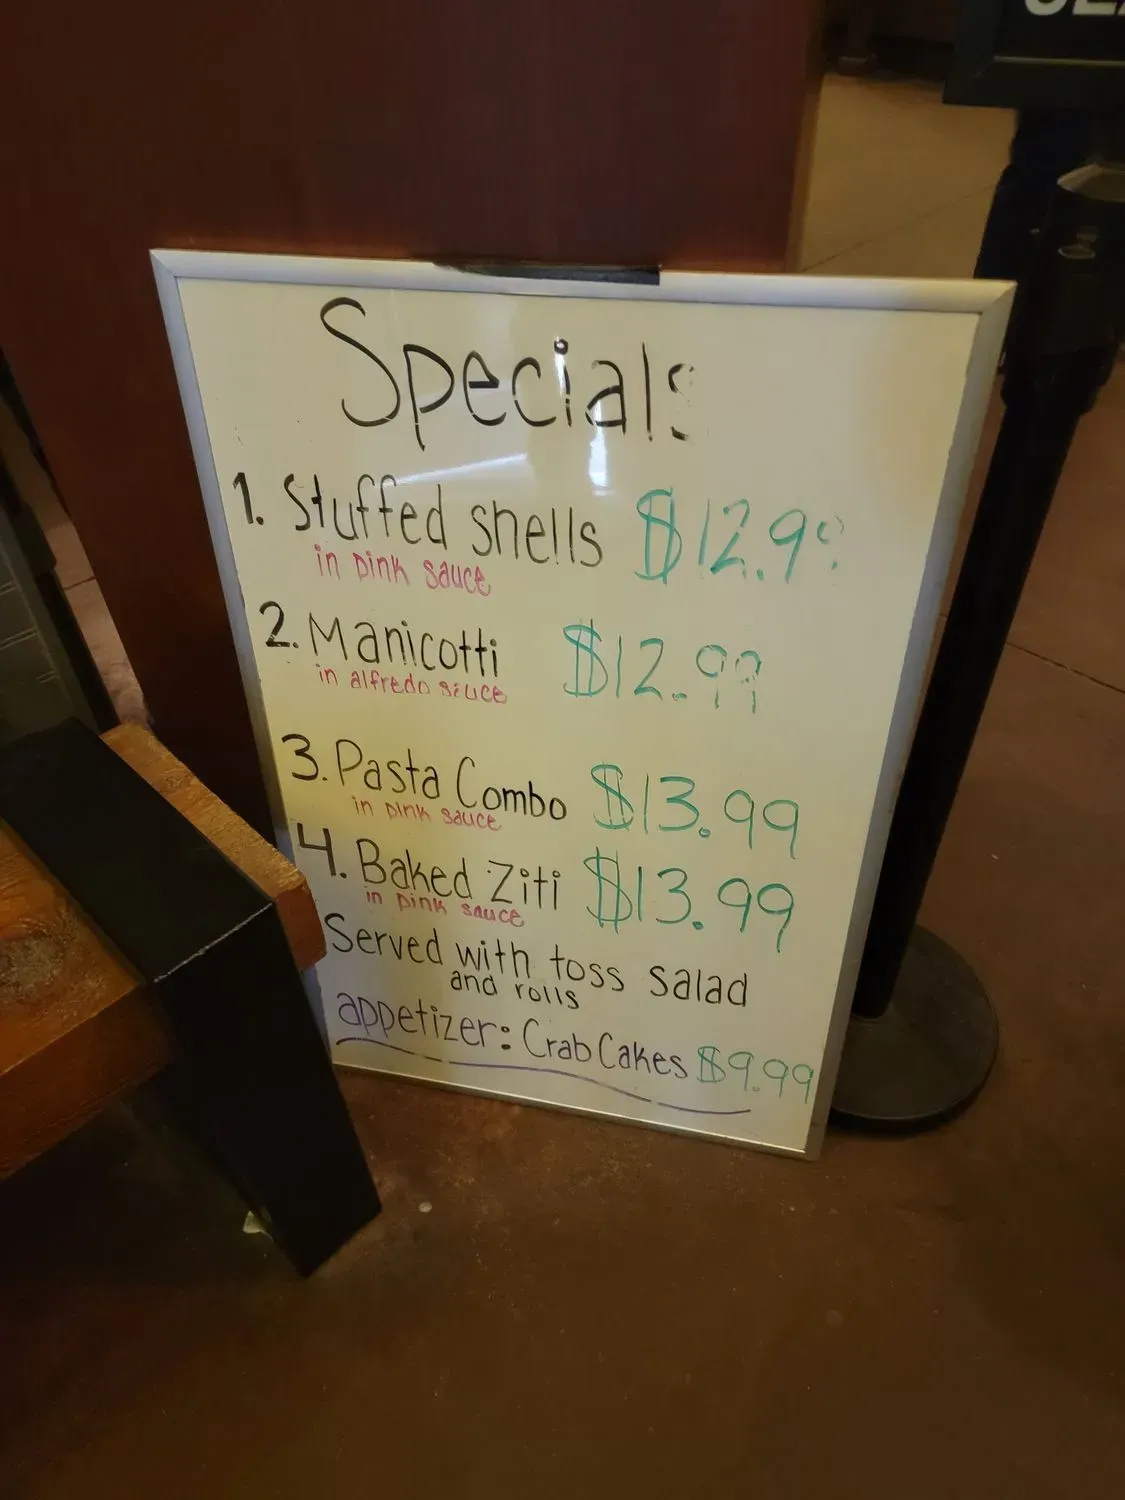 Specials
1. Stuffed shells $12.99
in pink sauce
2. Manicotti $12.99
in alfredo sauce
3. Pasta Combo $13.99
in pink sauce
4. Baked Ziti $13.99
in pink sauce
Served with toss salad
and rolls
appetizer: Crab Cakes $9.99